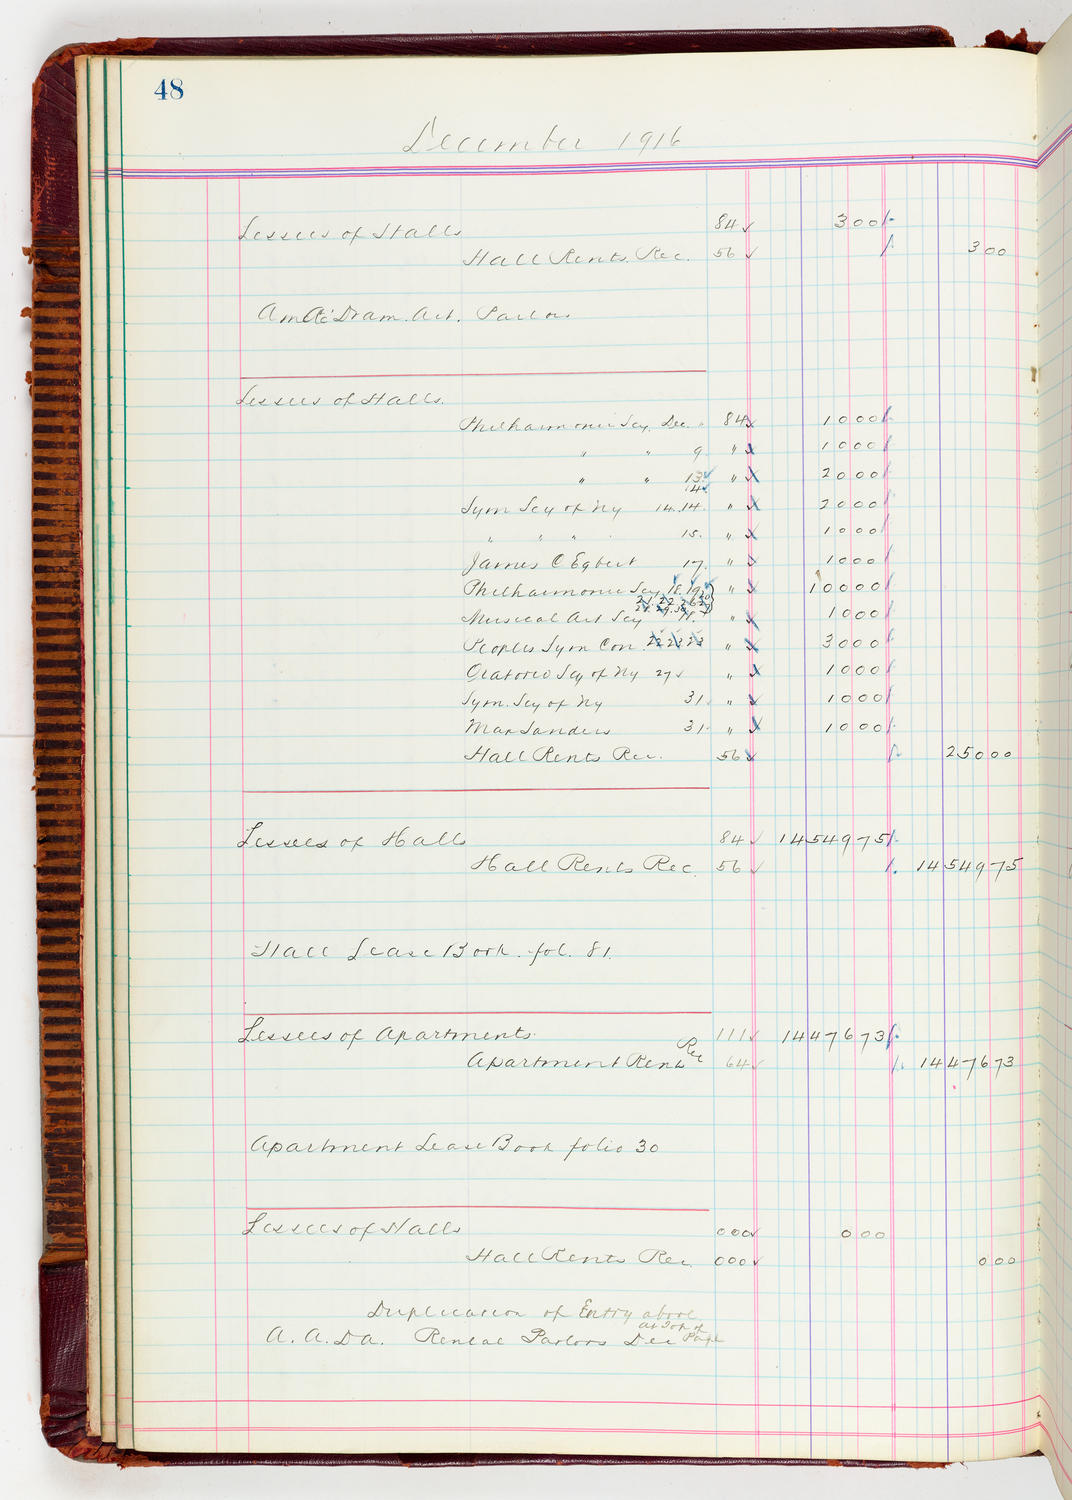 48
December 1916
Lessees of Halls 84 ✓ 300
Hall Rents Rec. 56 ✓ 300
Am Ac Dram. Art. Parlors
Lessees of Halls.
Philharmonic Scy. Dec. " 84 ✓ 1000
" " 9 " ✓ 1000
" " 13 " ✓ 2000
14
Sym Scy of Ny 14.14. " ✓ 2000
" " " 15. " ✓ 1000
James C Egbert 17. " ✓ 1000
Philharmonic Scy 18. 19. " ✓ 10000
Musical Art Scy " ✓ 1000
Peoples Sym Con. 22 23 23 " ✓ 3000
Oratorio Scy of Ny 27 ✓ " ✓ 1000
Sym. Scy of Ny 31. " ✓ 1000
Max Sanders 31. " ✓ 1000
Hall Rents Rec. 56 ✓ 25000
Lessees of Halls 84 ✓ 1454975
Hall Rents Rec. 56 ✓ 1454975
Hall Lease Book. fol. 81.
Lessees of Apartments. 111 ✓ 1447673
Apartment Rents Rec 64 ✓ 1447673
Apartment Lease Book folio 30
Lessees of Halls 000 ✓ 000
Hall Rents Rec. 000 ✓ 000
Duplication of Entry above
at Top of
A. A. DA. Rental Parlors Dec Page